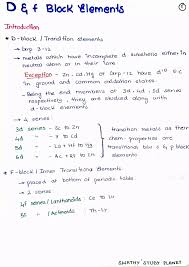 D & f Block Elements
Introduction
D-block / Transition elements
→ Grp 3-12
→ metals which have incomplete d subshell either in
neutral atom or in their ions
Exception - Zn, Cd, Hg of Grp 12 have d¹⁰ e⁻s
in ground and common oxidation states
- Being the end members of 3d, 4d, 5d series
respectively, they are studied along with
d-block elements
→ 4 series
3d series - Sc to Zn
4d - Y to Cd
5d - La + Hf to Hg
6d
transition metals as their
chem properties are
transitional b/w s & p
block
F-block / Inner Transition Elements
→ placed at bottom of periodic table
→ 2 series
4f series / Lanthanoids - Ce to
5f / Actinoids - Th-Lr
SWATHY STUDY PLANET